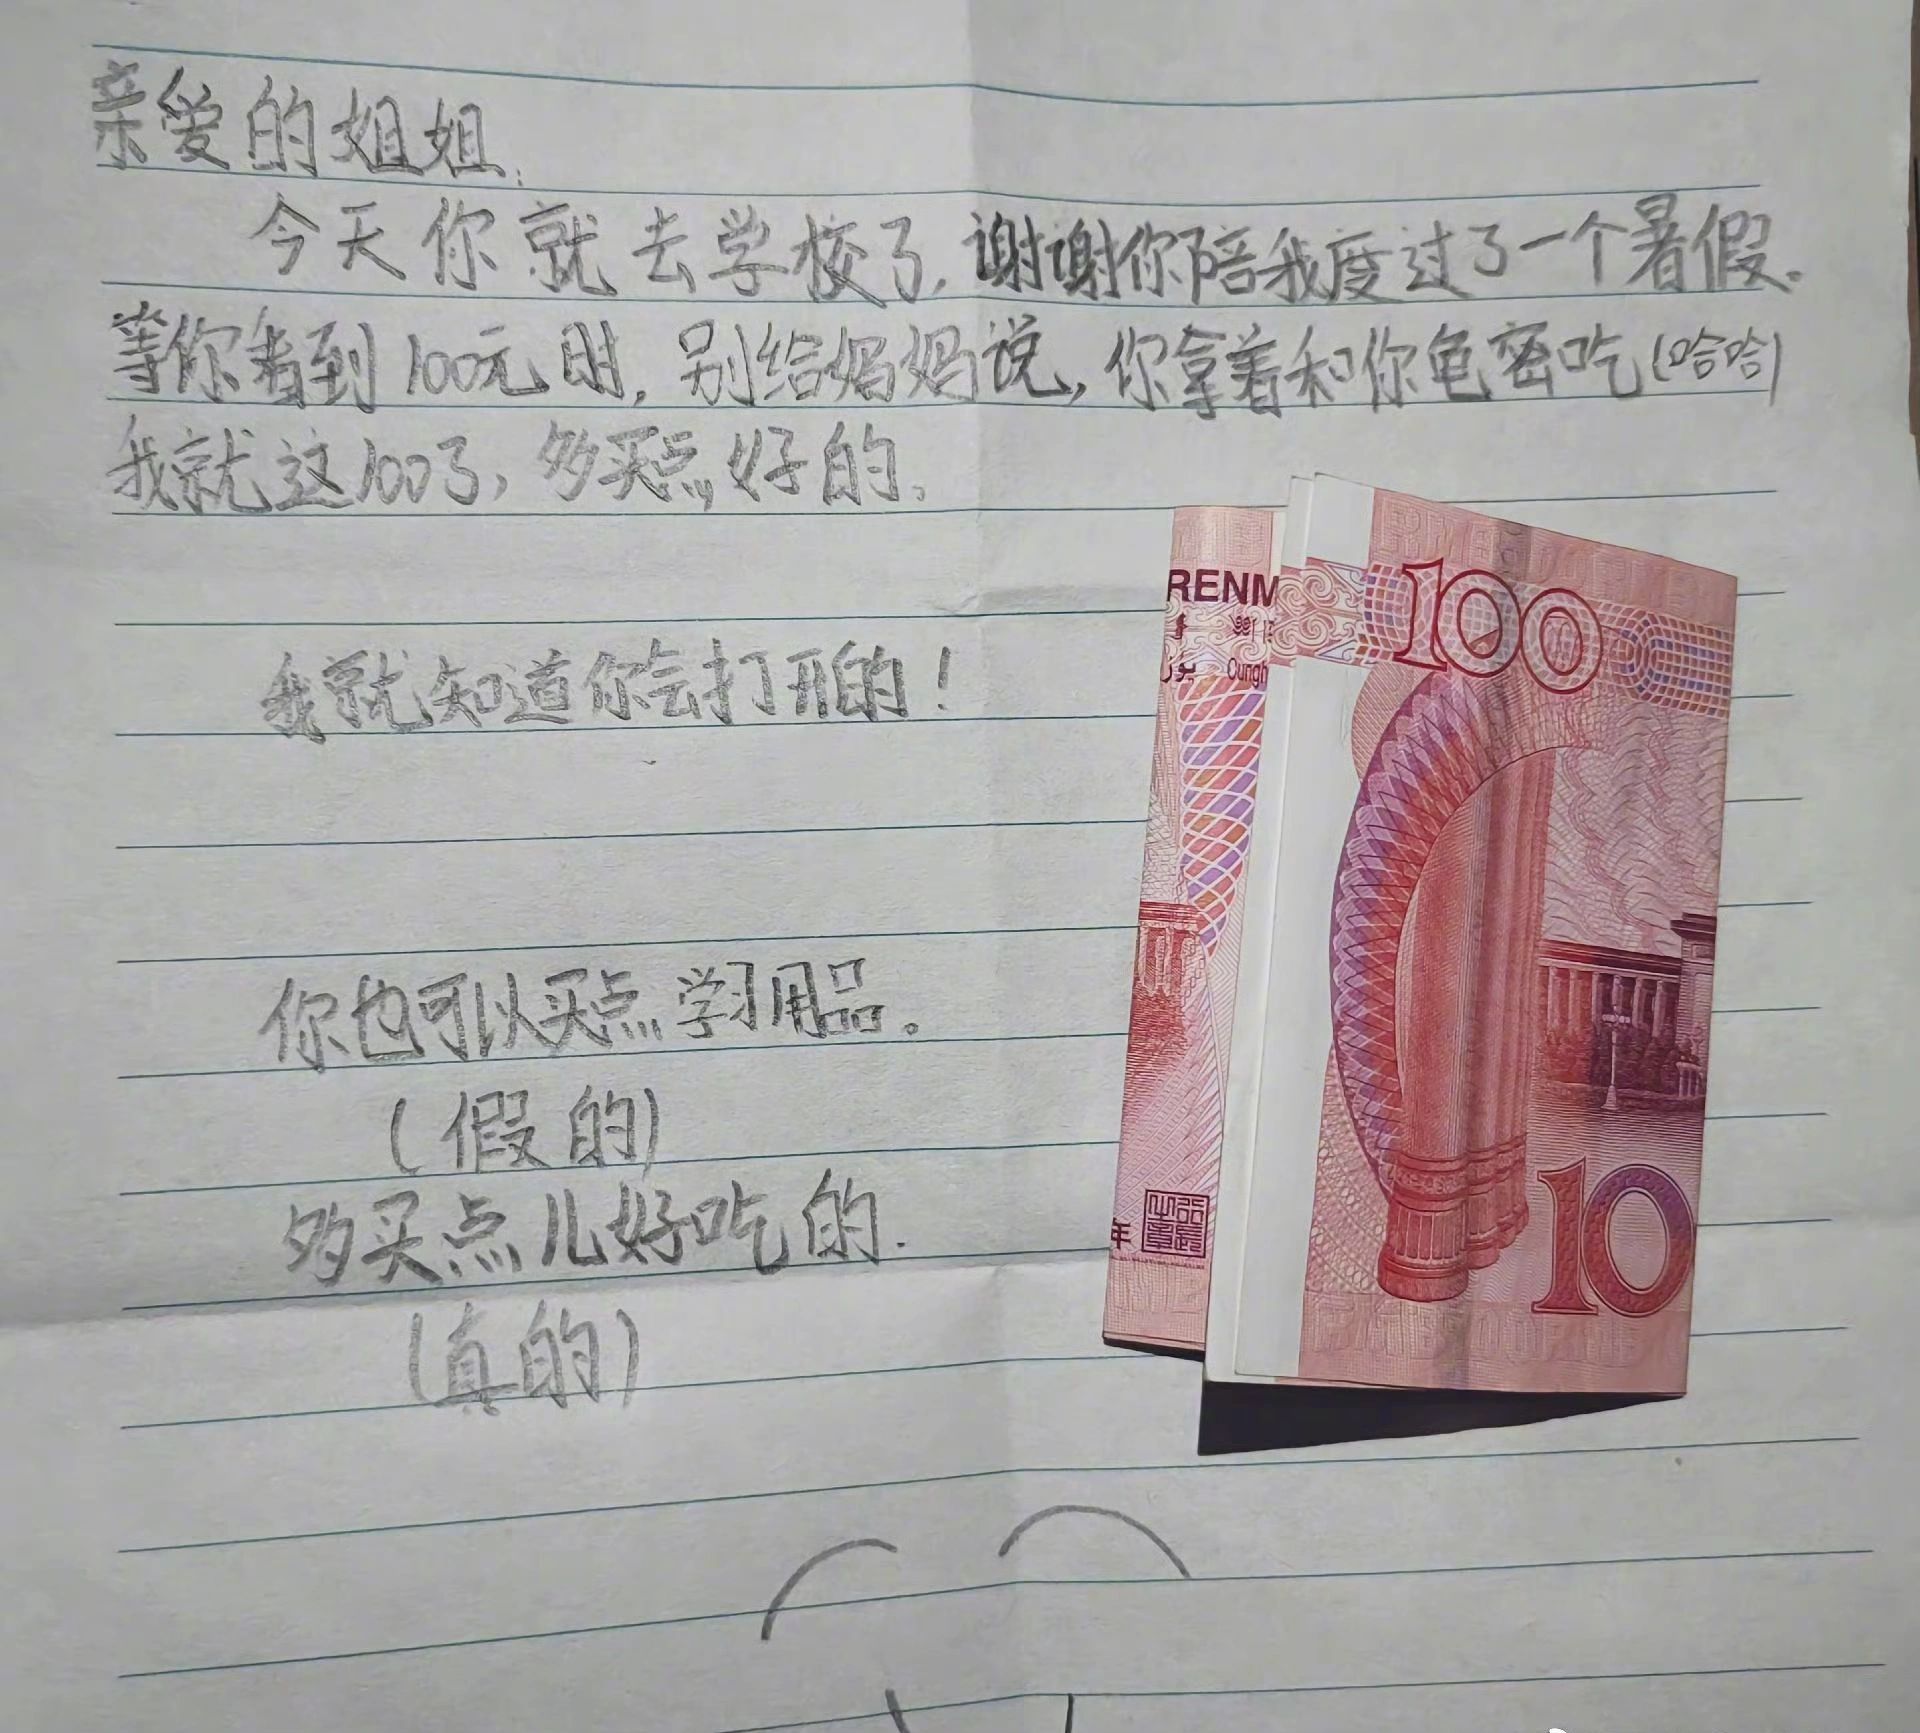 亲爱的姐姐:
今天你就去学校了，谢谢你陪我度过了一个暑假。
等你看到100元时，别给妈妈说，你拿着和你龟密吃(哈哈)
我就这100了，多买点好的.
我就知道你会打开的！
你也可以买点学习用品。
(假的)
多买点儿好吃的.
(真的)
RENM
100
Cungh
年
10